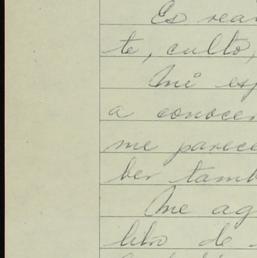 Es rea
te, culto,
Mi esp
a conocer
me parece
ber tamb
Me ag
libro de